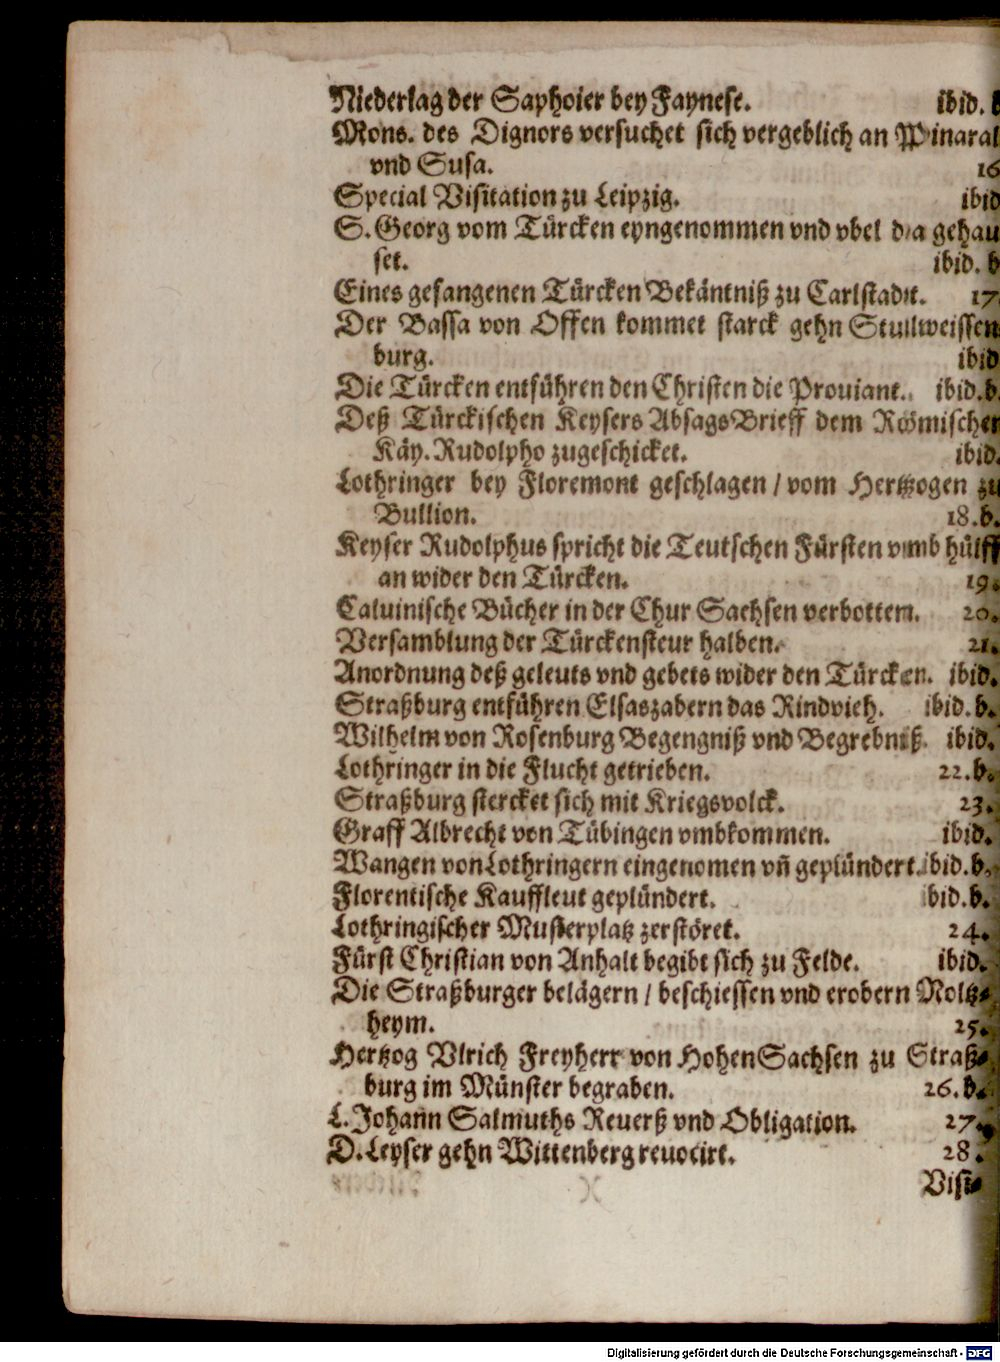 Niederlag der Saphoier bey Faynese. ibid. b
Mons. des Dignors versuchet sich vergeblich an Pinaral
vnd Susa. 16
Special Visitation zu Leipzig. ibid
S. Georg vom Türcken eyngenommen vnd vbel da gehau
set. ibid. b
Eines gefangenen Türcken Bekäntniß zu Carlstadt. 17.
Der Bassa von Offen kommet starck gehn Stullweissen
burg. ibid
Die Türcken entführen den Christen die Prouiant. ibid. b.
Deß Türckischen Keysers AbsagsBrieff dem Römischer
Käy. Rudolpho zugeschicket. ibid.
Lothringer bey Floremont geschlagen / vom Hertzogen zu
Bullion. 18. b.
Keyser Rudolphus spricht die Teutschen Fürsten vmb hülff
an wider den Türcken. 19.
Caluinische Bücher in der Chur Sachsen verbotten. 20.
Versamblung der Türckensteur halben. 21.
Anordnung deß geleuts vnd gebets wider den Türcken. ibid.
Straßburg entführen Elsaszabern das Rindvieh. ibid. b.
Wilhelm von Rosenburg Begengniß vnd Begrebniß. ibid.
Lothringer in die Flucht getrieben. 22. b.
Straßburg stercket sich mit Kriegsvolck. 23.
Graff Albrecht von Tübingen vmbkommen. ibid.
Wangen von Lothringern eingenomen vñ geplündert. ibid. b.
Florentische Kauffleut geplündert. ibid. b.
Lothringischer Musterplatz zerstöret. 24.
Fürst Christian von Anhalt begibt sich zu Felde. ibid.
Die Straßburger belägern / beschiessen vnd erobern Moltz-
heym. 25.
Hertzog Vlrich Freyherr von HohenSachsen zu Straß-
burg im Münster begraben. 26. b.
L. Johann Salmuths Reuerß vnd Obligation. 27.
D. Leyser gehn Wittenberg reuocirt. 28.
Visi-
Digitalisierung gefördert durch die Deutsche Forschungsgemeinschaft - DFG